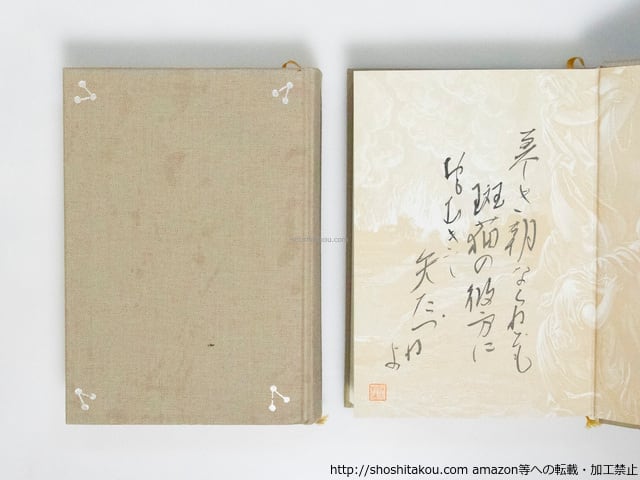 美しき朝ならねども
斑猫の彼方に
おもむきし
矢たづね
よ
shoshitakou.com
http://shoshitakou.com amazon等への転載・加工禁止